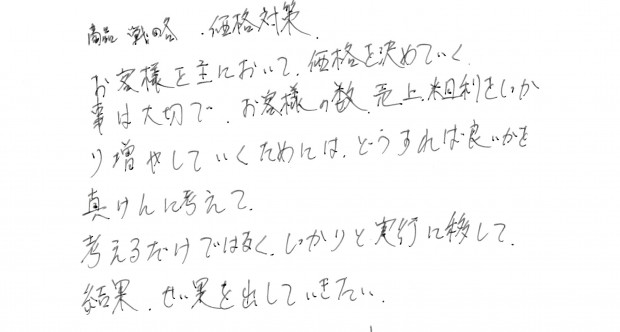 商品戦略．価格対策．
お客様を主において．価格を決めていく
事は大切で．お客様の数．売上．粗利をしっか
り増やしていくためには．どうすれば良いかを
真けんに考えて．
考えるだけではなく．しっかりと実行に移して．
結果．せい果を出していきたい．